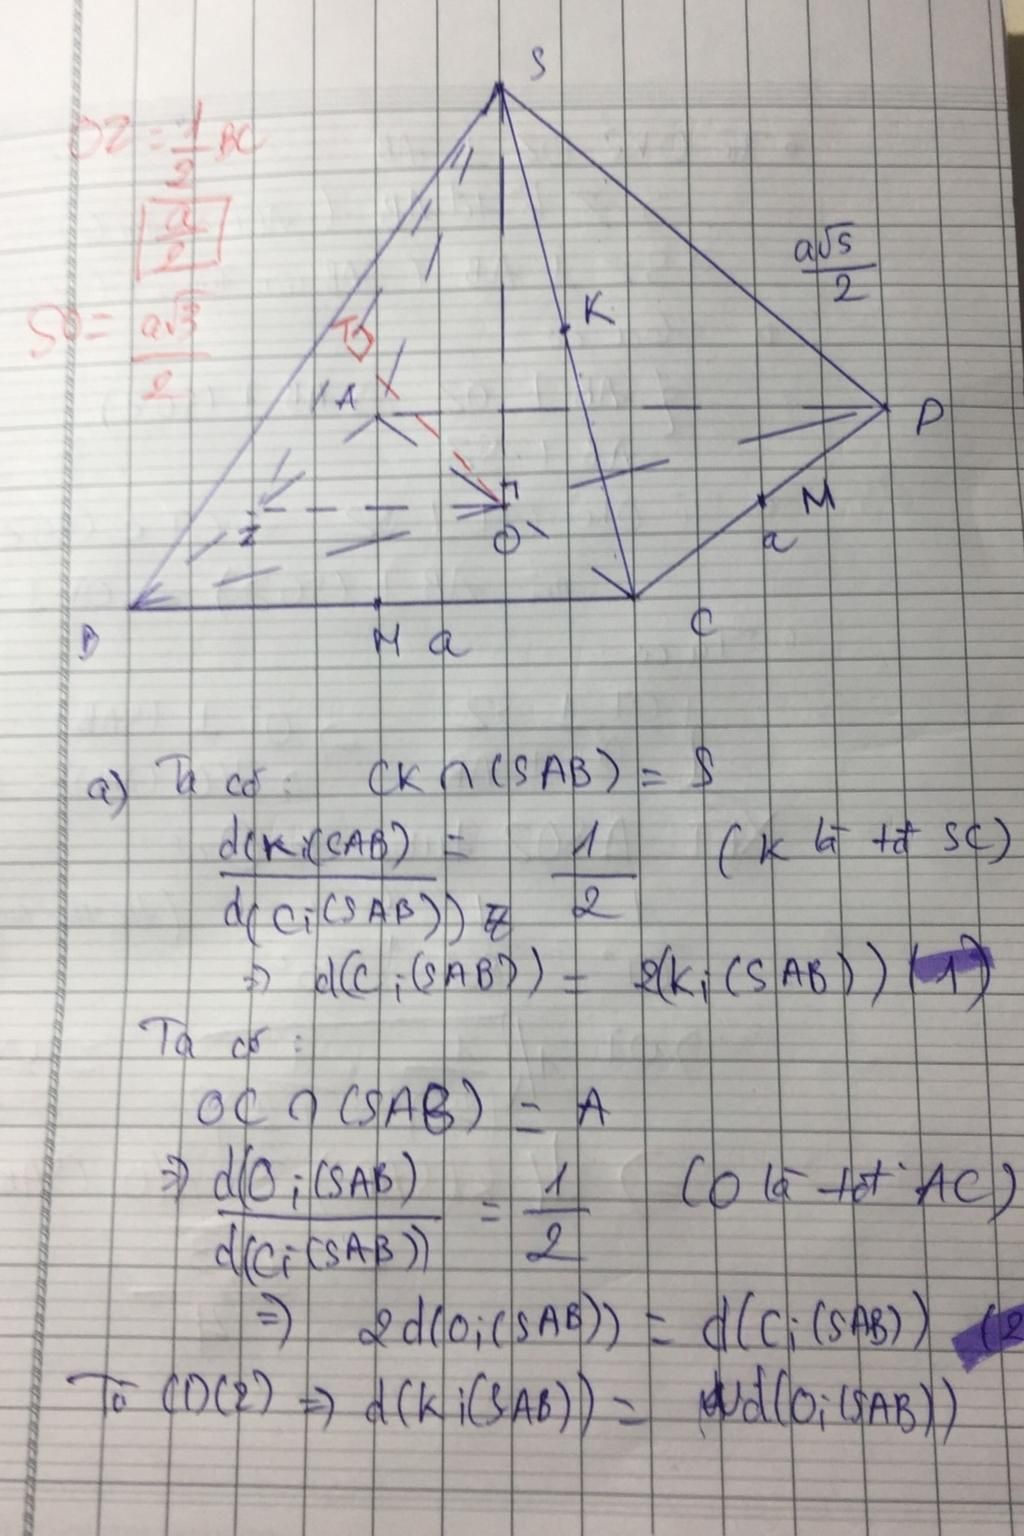 S
OZ = 1/2 BC
a/2
SO = a√3/2
a√5/2
K
A
D
M
a
Z
O
B
H a
C
a) Ta có : CK ∩ (SAB) = S
d(K;(SAB) / d(C;(SAB)) = 1/2 (K là tđ SC)
⇒ d(C;(SAB)) = 2(K;(SAB)) (1)
Ta có :
OC ∩ (SAB) = A
⇒ d(O;(SAB) / d(C;(SAB)) = 1/2 (O là tđ AC)
⇒ 2d(O;(SAB)) = d(C;(SAB)) (2
Từ (1)(2) ⇒ d(K;(SAB)) = d(O;(SAB))